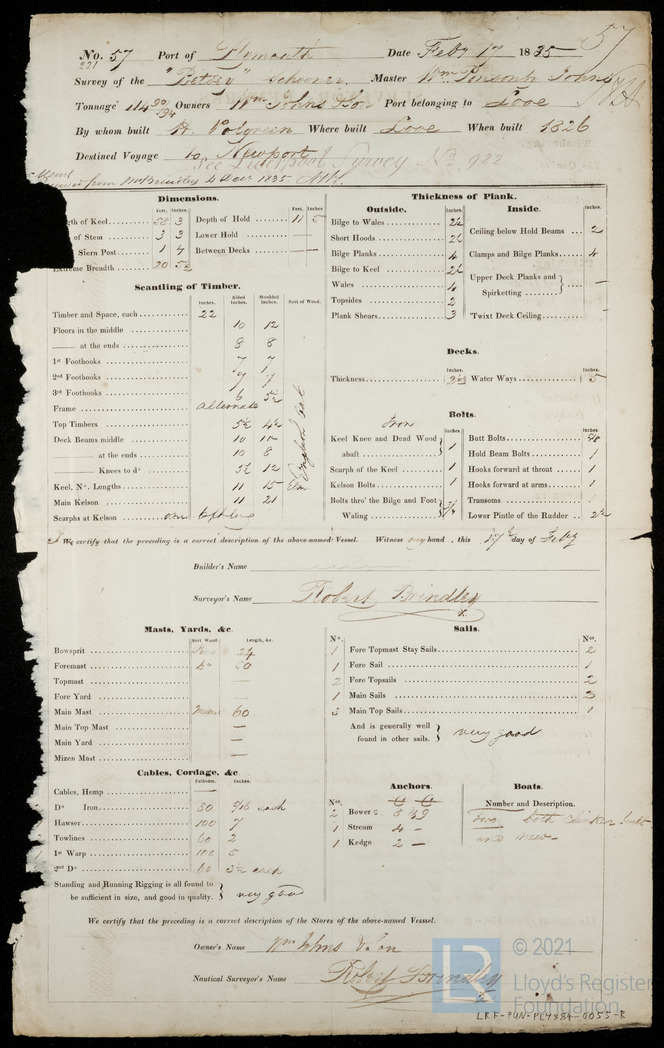 No. 57 Port of Plymouth Date Feby 17 1835 57
221
Survey of the "Betsey" schooner Master Wm Johns
Tonnage 114 30/94 Owners Wm Johns & Son Port belonging to Looe
By whom built Where built Looe When built 1826
Destined Voyage to Newport
See Liverpool Survey No. 922
from Mr Brindley 2 Decr 1835.
Dimensions.
Feet. Inches.
of Keel 3
of Stem 3 3
Stern Post 1 7
Extreme Breadth 20 5½
Feet. Inches
Depth of Hold 11 5
Lower Hold —
Between Decks —
Scantling of Timber.
Inches. Sided Inches. Moulded Inches. Sort of Wood.
Timber and Space, each 22
Floors in the middle 10 12
—— at the ends 8 8
1st Foothooks 7 7
2nd Foothooks 7 7
3rd Foothooks 6 5½
Frame alternate
Top Timbers 5½ 4½
Deck Beams middle 10 10
—— at the ends 10 8
—— Knees to do 5½ 12
Keel, No. Lengths 11 15 Elm
Main Kelson 11 21
Scarphs at Kelson
English Oak
Thickness of Plank.
Outside. Inches.
Bilge to Wales 2½
Short Hoods 2½
Bilge Planks 4
Bilge to Keel 2½
Wales 4
Topsides 2
Plank Shears 3
Inside. Inches.
Ceiling below Hold Beams 2
Clamps and Bilge Planks 4
Upper Deck Planks and Spirketting —
'Twixt Deck Ceiling —
Decks.
Inches. Inches.
Thickness 2½ Water Ways 5
Bolts.
Iron
Inches. Inches.
Keel Knee and Dead Wood abaft 1
Scarph of the Keel 1
Kelson Bolts 1
Bolts thro' the Bilge and Foot Waling 7/8
Butt Bolts
Hold Beam Bolts 1
Hooks forward at throat 1
Hooks forward at arms 1
Transoms 1
Lower Pintle of the Rudder 2½
I We certify that the preceding is a correct description of the above-named Vessel. Witness my hand, this 17th day of Feby
Builder's Name
Surveyor's Name Robert Brindley
Masts, Yards, &c.
Sort Wood. Length, &c.
Bowsprit 24
Foremast do 50
Topmast —
Fore Yard —
Main Mast 60
Main Top Mast —
Main Yard —
Mizen Mast —
Sails.
No. Nos.
1 Fore Topmast Stay Sails 2
1 Fore Sail 1
2 Fore Topsails 2
1 Main Sails 3
3 Main Top Sails 1
And is generally well found in other sails. very good
Cables, Cordage, &c
Fathoms. Inches.
Cables, Hemp —
Do Iron 80 each
Hawser 100 7
Towlines 60 2
1st Warp 100 5
2nd Do 60 3½ each
Standing and Running Rigging is all found to be sufficient in size, and good in quality. very good
Anchors.
Nos.
2 Bowers
1 Stream 4 —
1 Kedge 2 —
Boats.
Number and Description.
two both clinker built
and new
We certify that the preceding is a correct description of the Stores of the above-named Vessel.
Owner's Name Wm Johns & Son
Nautical Surveyor's Name Robert Brindley
LR © 2021
Lloyd's Register
Foundation
LRF-PUN-PLY884-0055-R